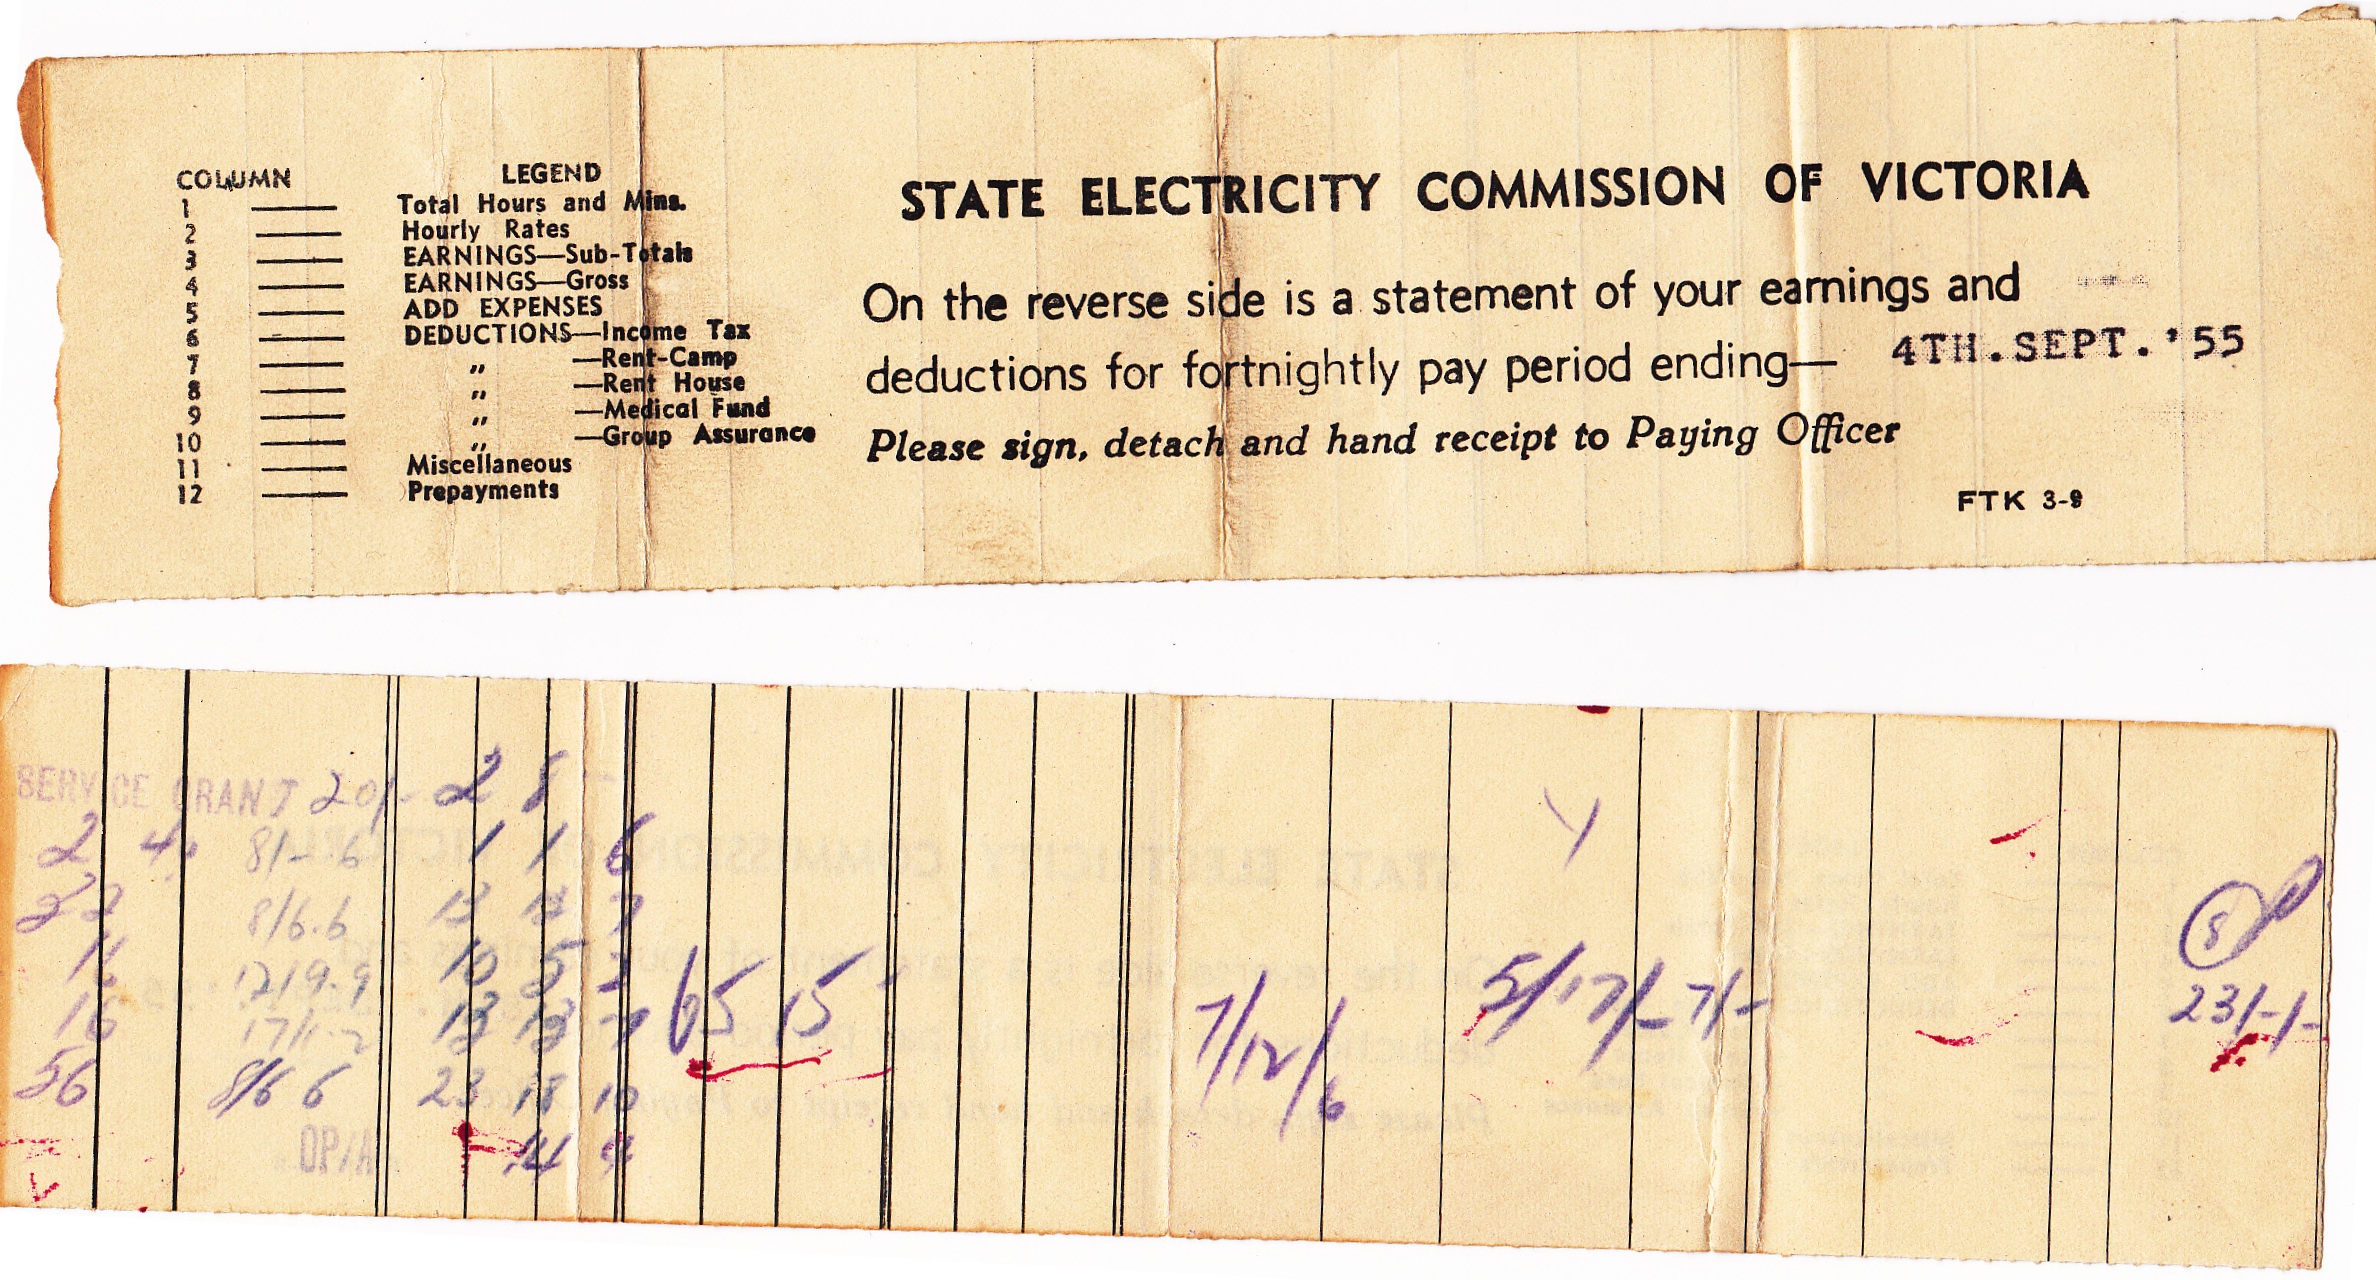 COLUMN LEGEND
1 —— Total Hours and Mins.
2 —— Hourly Rates
3 —— EARNINGS—Sub-Totals
4 —— EARNINGS—Gross
5 —— ADD EXPENSES
6 —— DEDUCTIONS—Income Tax
7 —— „ —Rent-Camp
8 —— „ —Rent House
9 —— „ —Medical Fund
10 —— „ —Group Assurance
11 —— Miscellaneous
12 —— Prepayments
STATE ELECTRICITY COMMISSION OF VICTORIA
On the reverse side is a statement of your earnings and
deductions for fortnightly pay period ending— 4TH.SEPT.'55
Please sign, detach and hand receipt to Paying Officer
FTK 3-9
SERVICE GRANT 20/- 2 8 -
2 4 8/-.6 1 1 6
8/6.6 7
16 12/9.9 10 5
16 17/1-2 13 13 7
56 8/6 6 23 18 10
OP/A 14
65 15
7/12/6
5/17/- 7/-
8
23/-/-